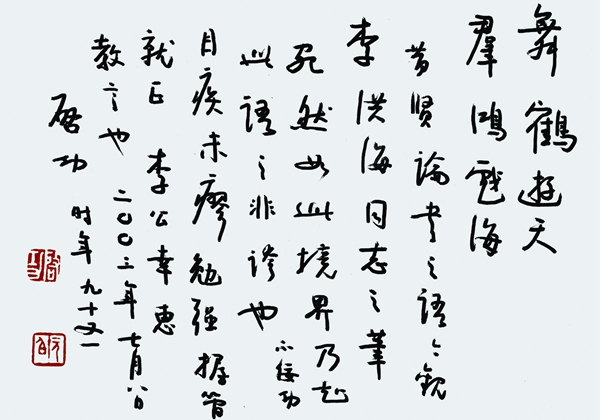 舞鶴遊天
羣鴻戲海
昔賢論書之語今觀
李洪海同志之筆
宛然如此境界乃知
此語之非誇也 不佞功
目疾未瘳勉强握管
就正 李公幸惠
教之也 二〇〇三年七月八日
啓功 时年九十又一